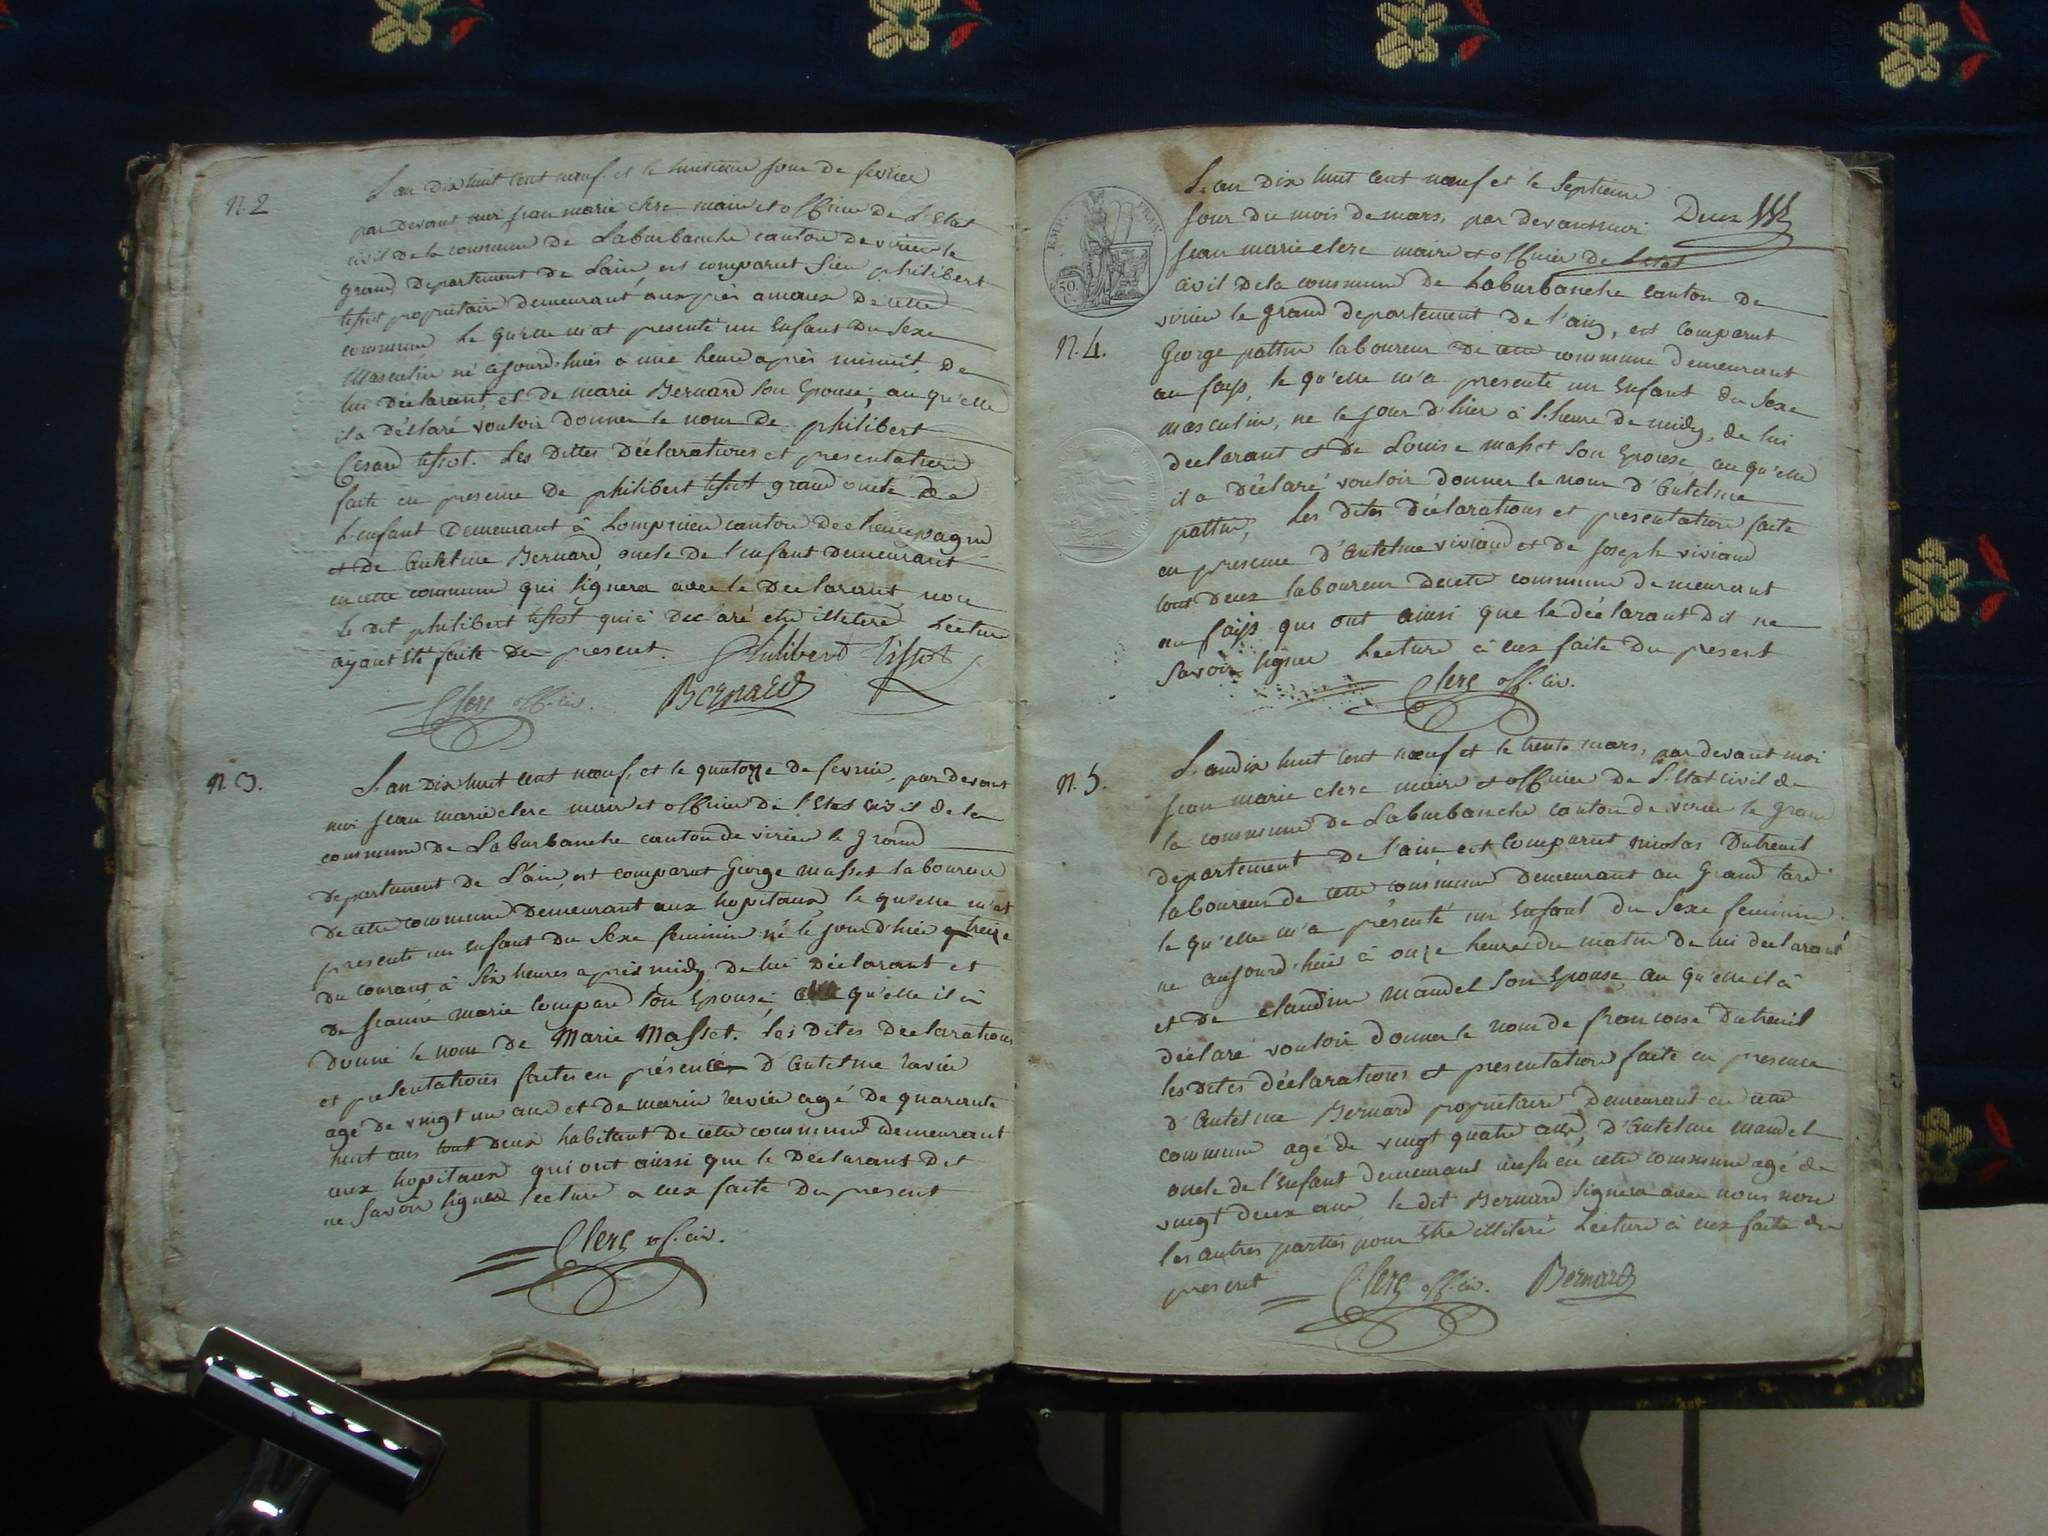 N. 2
L'an dix huit cent nœuf. et le huitieme jour de fevrier
par devant moi jean marie clerc maire et officier de L'Etat
civil de la commune de Laburbanche canton de virieu le
grand departement de L'ain est comparut sieu philibert
tissot proprietaire demeurant aux près amoux de cette
commune le qu'elle m'at presenté un enfant du sexe
masculin né cejourd'huis a une heure après minuit, de
lui declarant, et de marie Bernard son Epouse; au qu'elle
il a déclaré vouloir donner le nom de philibert
Cesard tissot. Les dittes déclarations et presentation
faite en presence de philibert tissot grand oncle de
L'enfant demeurant à Lompnieu canton de champagne
et de Antelme Bernard, oncle de l'enfant demeurant
en cette commune qui signera avec le declarant, non
le dit philibert tissot qui à declaré etre illeteré Lecture
ayant été faite du present. Philibert Tissot
Clerc off. civ. Bernard
N. 3.
L'an dix huit cent nœuf, et le quatorze de fevrier, par devant
moi jean marie clerc maire et officier de l'Etat civil de la
commune de Laburbanche canton de virieu le grand
departement de L'ain, est comparut George masset laboureur
de cette commune demeurant aux hopitaux, le qu'elle m'at
presenté un enfant du sexe feminin né le jour d'hier treize
du courant à six heures après midy de lui déclarant et
de jeanne marie compare son Epouse, qu'elle il à
donné le nom de Marie Masset. les dites declarations
et presentations faites en présence d'Antelme ravier
agé de vingt un ans et de marin ravier agé de quarante
huit ans tout deux habitant de cette commune demeurant
aux hopitaux qui ont ainssi que le declarant dit
ne savoir signer lecture a eux faite du present
Clerc of. civ.
EMP. FRAN.
50 C.
L'an dix huit cent nœuf et le septieme
jour du mois de mars, par devant moi Deux
jean marie clerc maire et officier de L'etat
civil de la commune de Laburbanche canton de
virieu le grand departement de l'ain, est comparut
N. 4.
George pattin laboureur de cette commune demeurant
au fays, le qu'elle m'a presenté un enfant du sexe
masculin, ne le jour d'hier à l'heure de midy, de lui
declarant et de Louise masset son Epouse au qu'elle
il a déclaré vouloir donner le nom d'Antelme
pattin; les dites déclarations et presentation faite
en presence d'Antelme viviand et de joseph viviand
tout deux laboureur de cette commune demeurant
au fays qui ont ainsi que le déclarant dit ne
savoir signer Lecture à eux faite du present
Clerc off. civ.
N. 5
L'an dix huit cent nœuf et le trente mars, par devant moi
jean marie clerc maire et officier de L'Etat civil de
la commune de Laburbanche canton de virieu le grand
departement de l'ain, est comparut nicolas Dutreuil
laboureur de cette commune demeurant au Grand taré
le qu'elle m'a présenté un enfant du sexe feminin
né aujourd'huis à onze heures du matin de lui declarant
et de claudine mandel son Epouse au qu'elle il à
déclaré vouloir donner le nom de francoise Dutreuil
les dites déclarations et presentation faite en presence
d'Antelme Bernard propriétaire demeurant en cette
commune agé de vingt quatre ans, d'Antelme mandel
oncle de l'enfant demeurant aussi en cette commune agé de
vingt deux ans le dit Bernard signera avec nous non
les autres parties pour etre illiteré Lecture à eux faite du
present Clerc off. civ. Bernard